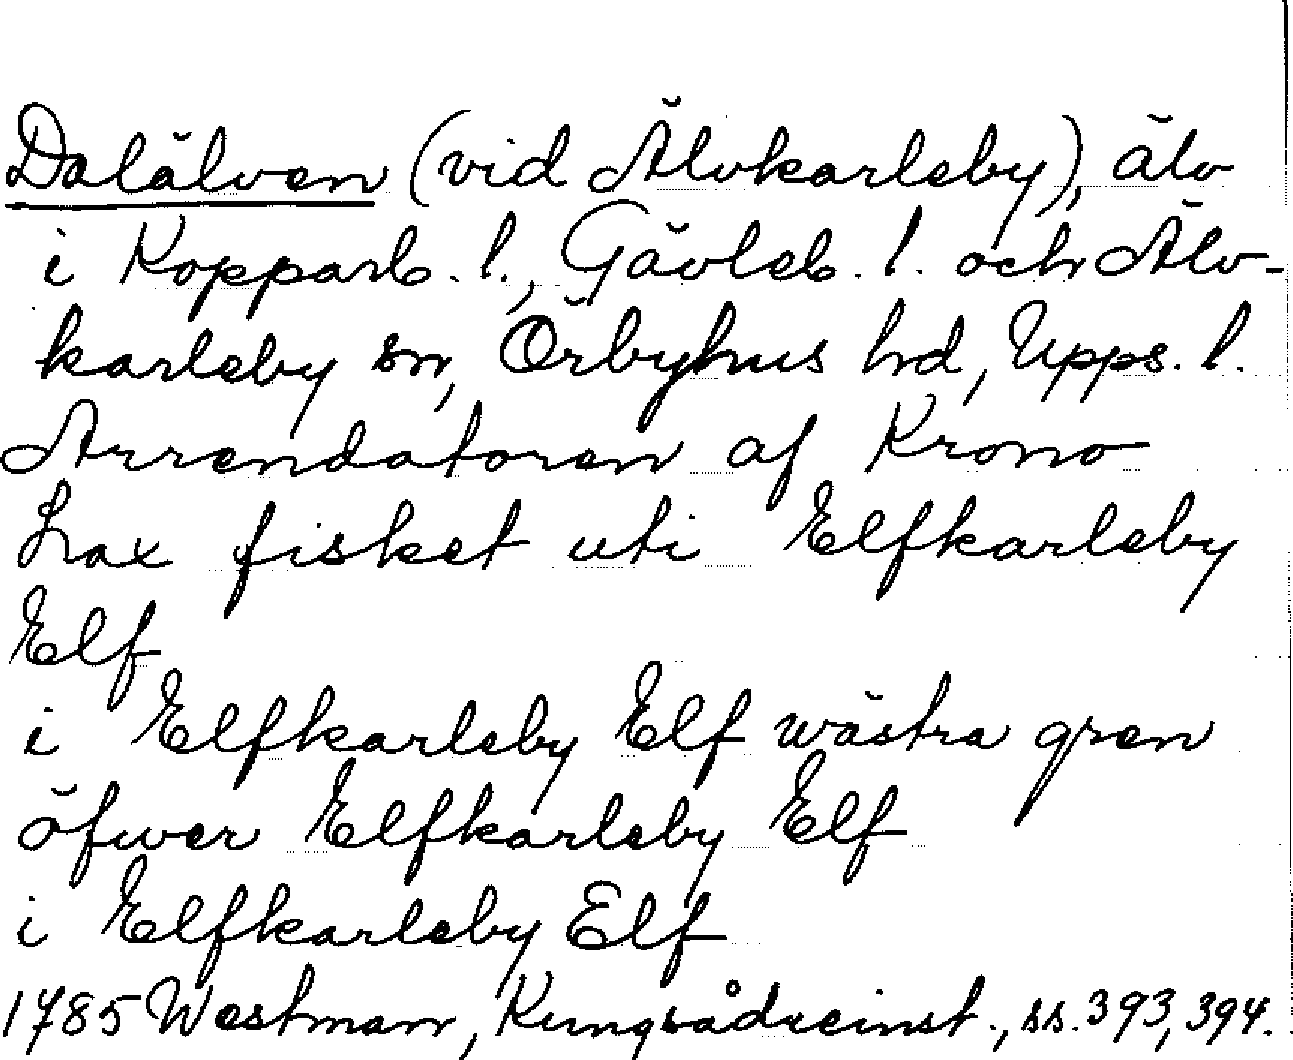 Dalälven (vid Älvkarleby), älv
i Kopparb. l., Gävleb. l. och Älv-
karleby sn, Örbyhus hd, Upps. l.
Arrendatoren af Krono
Lax fisket uti Elfkarleby
Elf
i Elfkarleby Elf wästra gren
öfwer Elfkarleby Elf
i Elfkarleby Elf
1785 Westman, Kungsådreinst., ss. 393, 394.